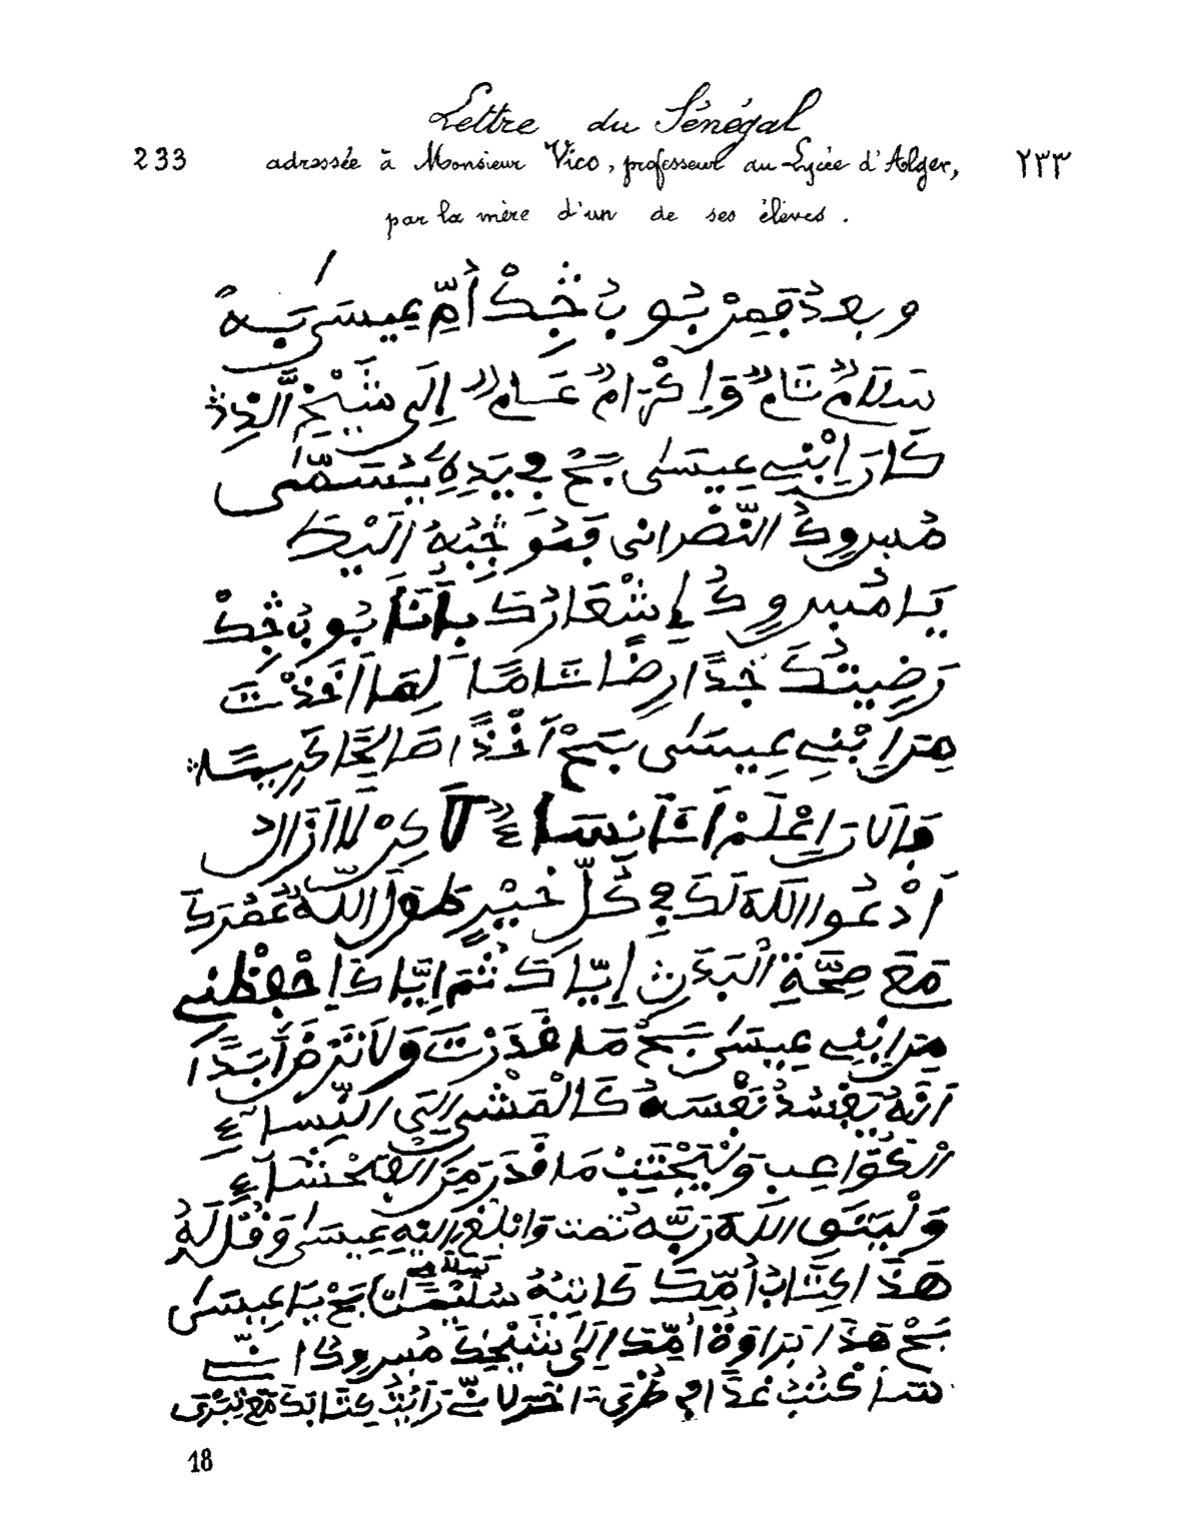 Lettre du Sénégal
233 adressée à Monsieur Vico, professeur au Lycée d'Alger, ٢٣٣
par la mère d'un de ses élèves.
وبعد فمن بُوبُ جُكْ أُمِّ عيسى
سَلَامٌ تَامٌ وَإِكْرَامٌ عَامٌ إِلَى شَيْخِ الَّذِي
كَانَ اِبْنِي عِيسَى بَحْ فِي يَدِهِ يُسَمَّى
مُبروكُ النَّصْرانى فَهُوَ إِلَيْكَ
يَا مُبروكُ إِشْعَارُكَ بِأَنَا بُوبُ جُكْ
رَضِيتُكَ جَدًّا رِضًا تَامًا لِمَا أَخَذْتَ
مِنَ اِبْنِي عِيسَى بَحْ أَخْذًا صَالِحًا
فَالآنَ اِعْلَمْ لَاكِنْ لَا أَزَالُ
أَدْعُوا اللَّهَ لَكَ فِي كُلِّ خَيْرٍ طَوَّلَ اللَّهُ عُمْرَكَ
مَعَ صِحَّةِ الْبَدَنِ إِيَّاكَ ثُمَ إِيَّاكَ اِحْفِظْنِي
مِنَ اِبْنِي عِيسَى بَحْ مَا قَدَرْتَ وَلَا تَتْرَكْ أَبَدًا
أَنَّهُ يَفْسُدُ نَفْسَهُ كَالْمَشْيِ إِلَى النِّسَآءِ
الْكَوَاعِبِ وَلْيَجْتَنِبْ مَا قَدَرَ مِنَ الْفَحْشَآءِ
وَلْيَتَّقِ اللَّهَ رَبَّهُ تمت وَابْلِغْ إِلَيْهِ عِيسَى وَقُلْ لَهُ
هَذَا كِتَابُ أُمِّكَ كَاتِبُهُ سُلَيْمَان بَحْ يَا عِيسَى
سلام
بَحْ هَذَا أُمِّكَ إِلَى شَيْخِكَ مُبروكُ إِنِّي
سَأَكْتُبُ غَدًا كِتَابَكَ مَعَ
18